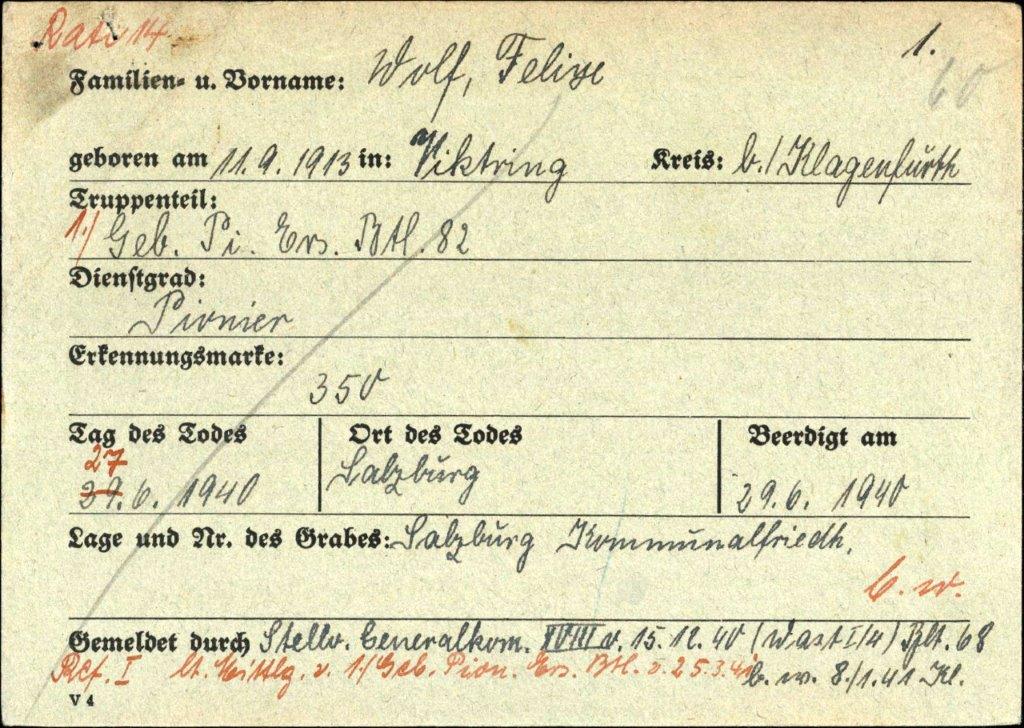 1.
Familien= u. Vorname: Wolf, Felix
60
geboren am 11.9.1913 in: Viktring Kreis: b./Klagenfurth
Truppenteil:
1./ Geb. Pi. Ers. Btl. 82
Dienstgrad:
Pionier
Erkennungsmarke:
350
Tag des Todes Ort des Todes Beerdigt am
27
29.6. 1940 Salzburg 29.6. 1940
Lage und Nr. des Grabes: Salzburg Kommunalfriedh.
b. w.
Gemeldet durch Stellv. Generalkom. XVIII v. 15.12.40 (Wast I/4) Blt. 68
Ref. I lt. Mittlg. v. 1./Geb. Pion. Ers. Btl. v. 25.3.41 b. w. 8./1.41 Kl.
V 4